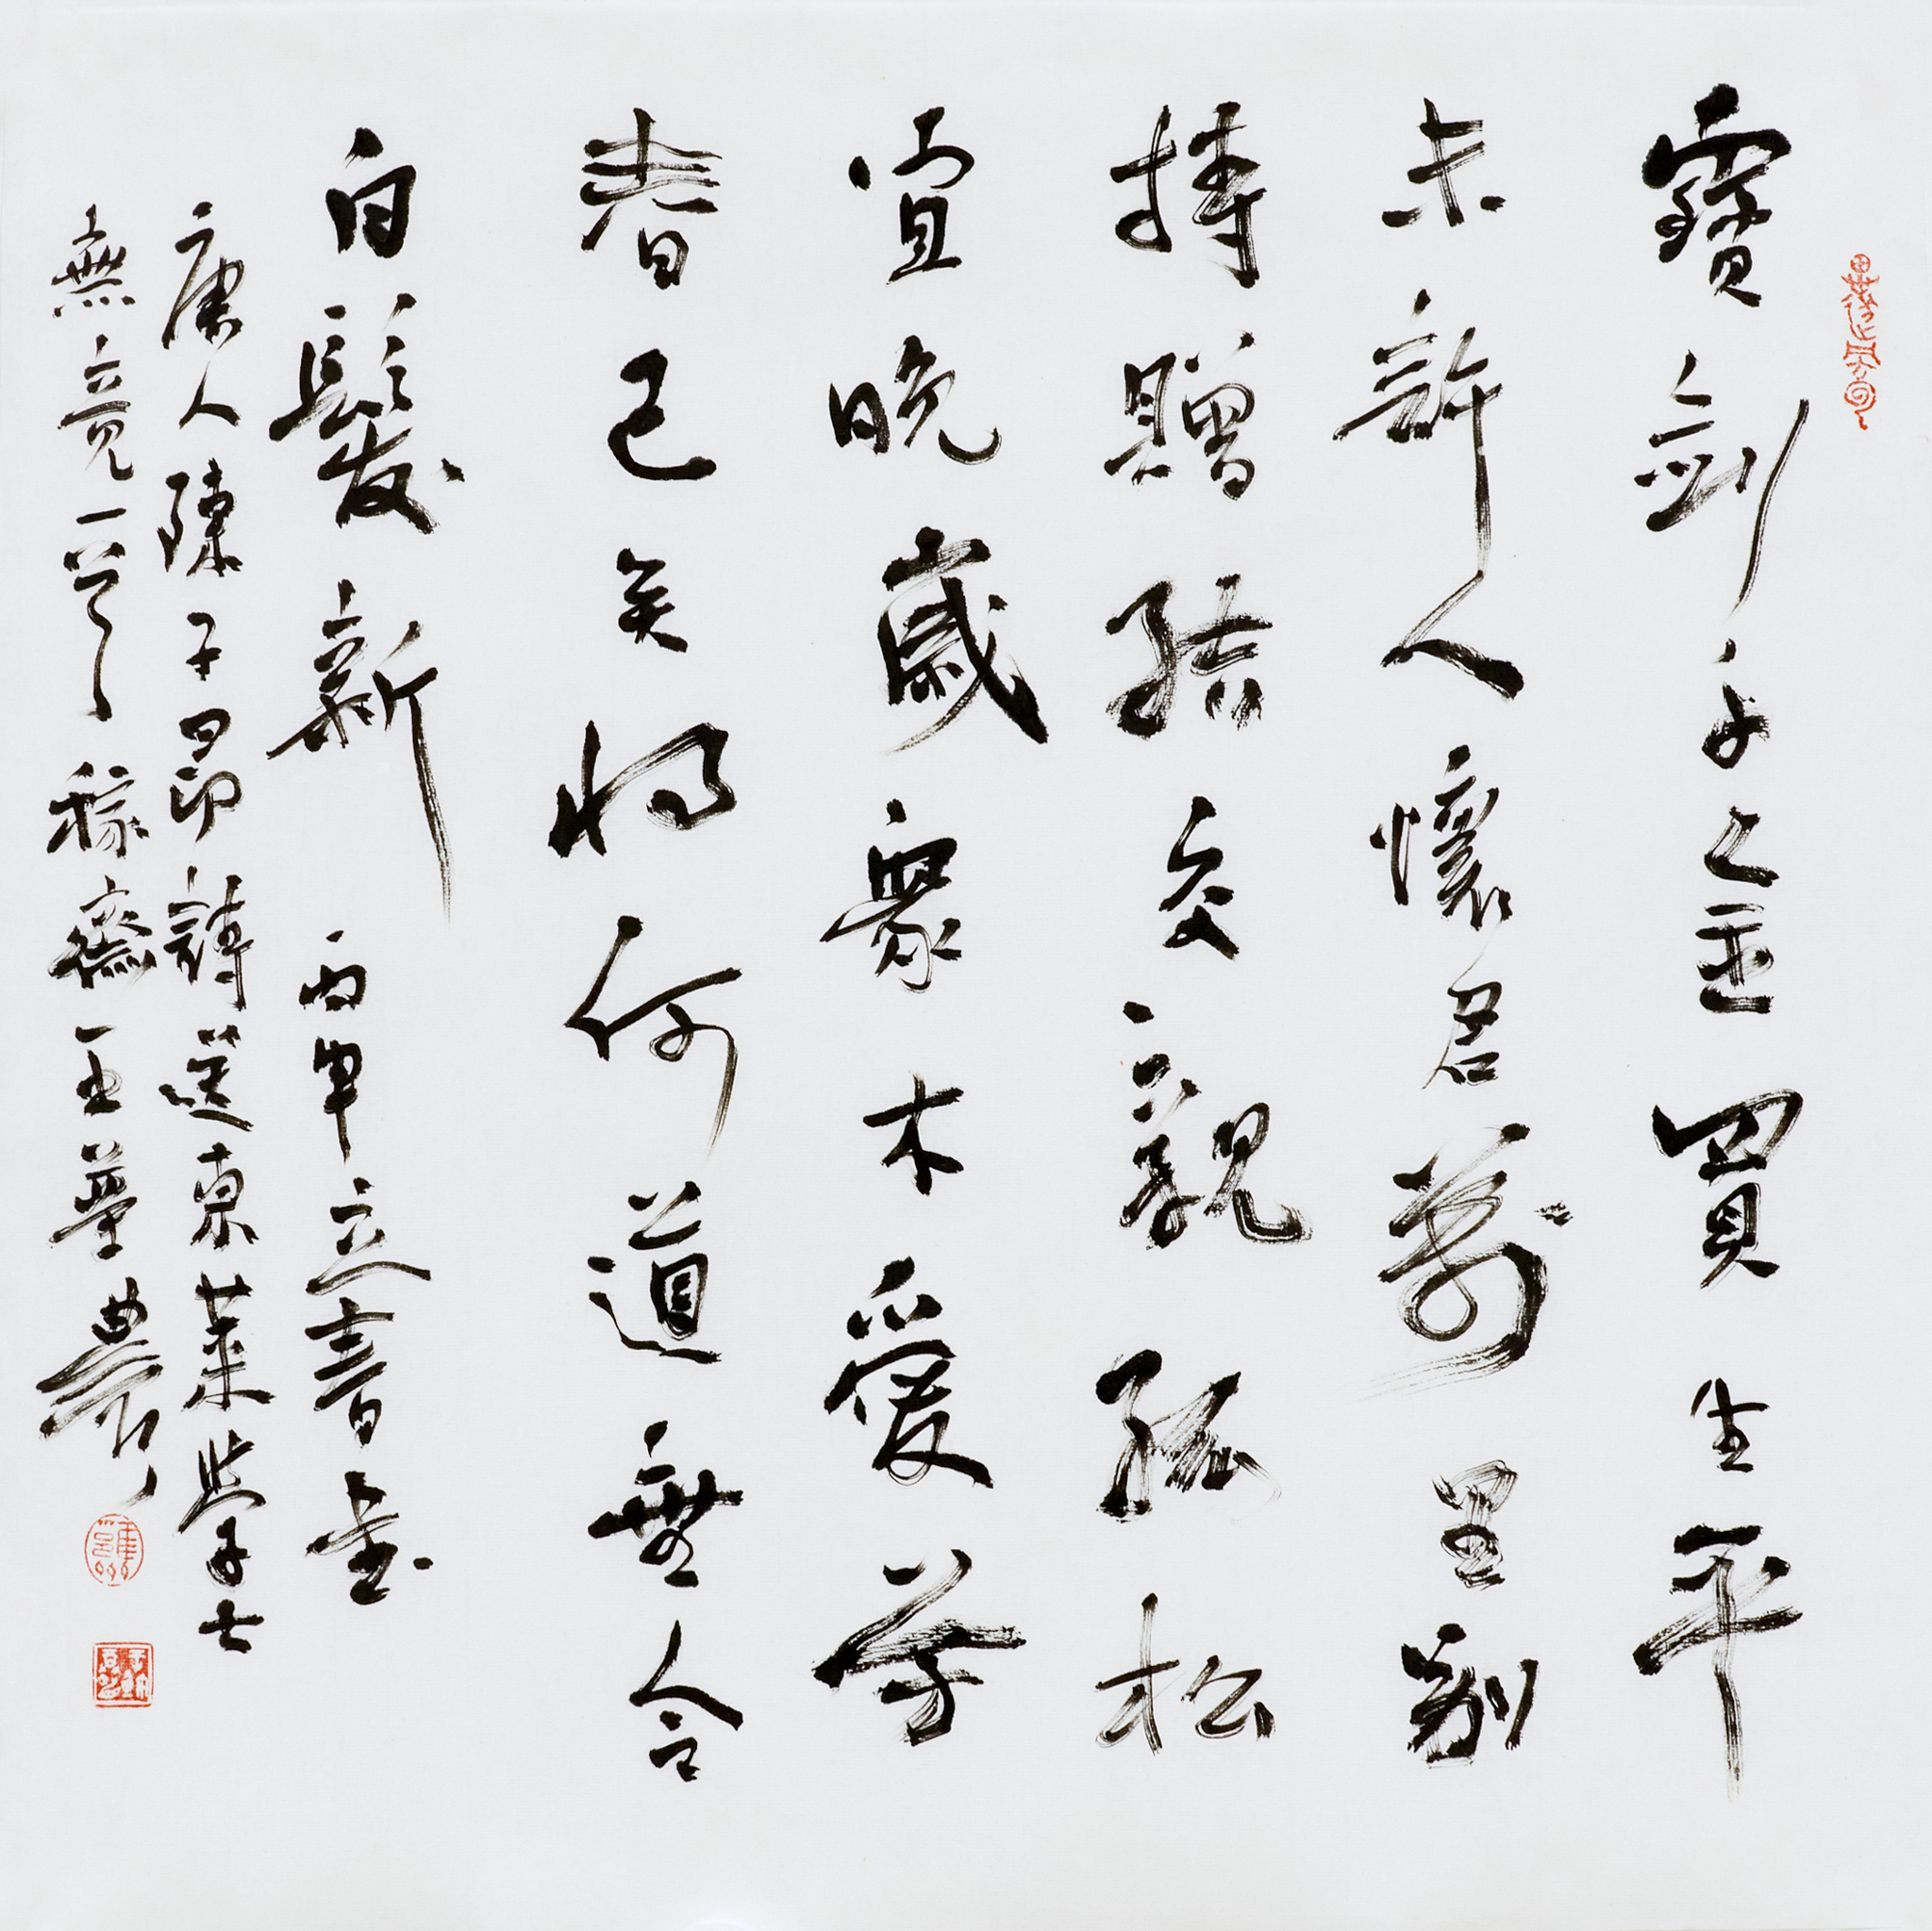 寶劍千金買生平
未許人懷君萬里別
持贈結交親孤松
宜晚歲眾木愛芳
春已矣將何道無令
白髮新 丙申立春書
唐人陳子昂詩送東萊學士
無竟一首 稼齋王農